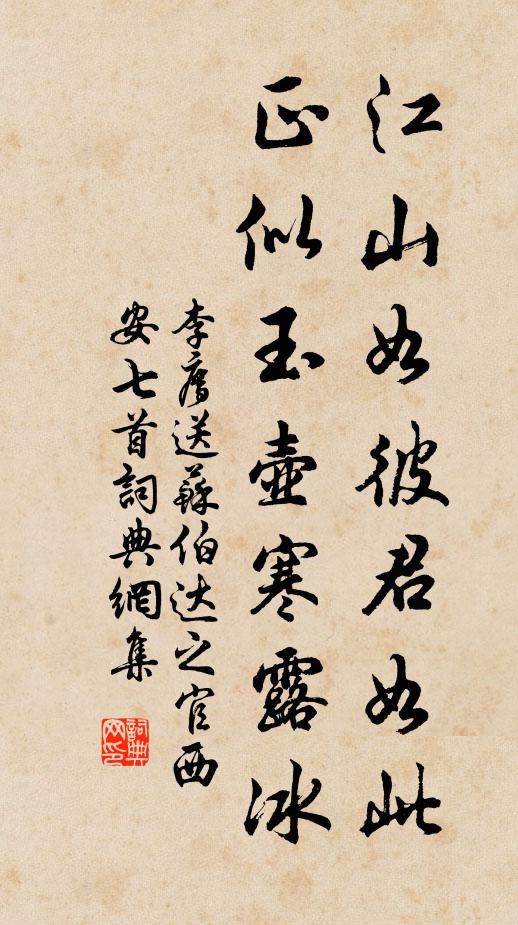 江山如彼君如此
正似玉壺寒露冰
李廌送蘇伯达之官西
安七首詞典網集
詞典
网印